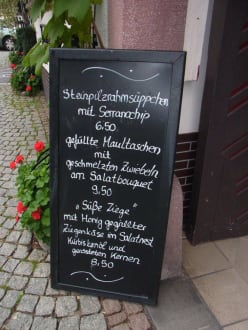 Steinpilzrahmsüppchen
mit Serranochip
6,50
gefüllte Maultaschen
mit
geschmelzten Zwiebeln
am Salatbouquet
9,50
„Süße Ziege"
mit Honig gegrillter
Ziegenkäse im Salatnest
Kürbiskernöl und
gerösteten Kernen
8,50